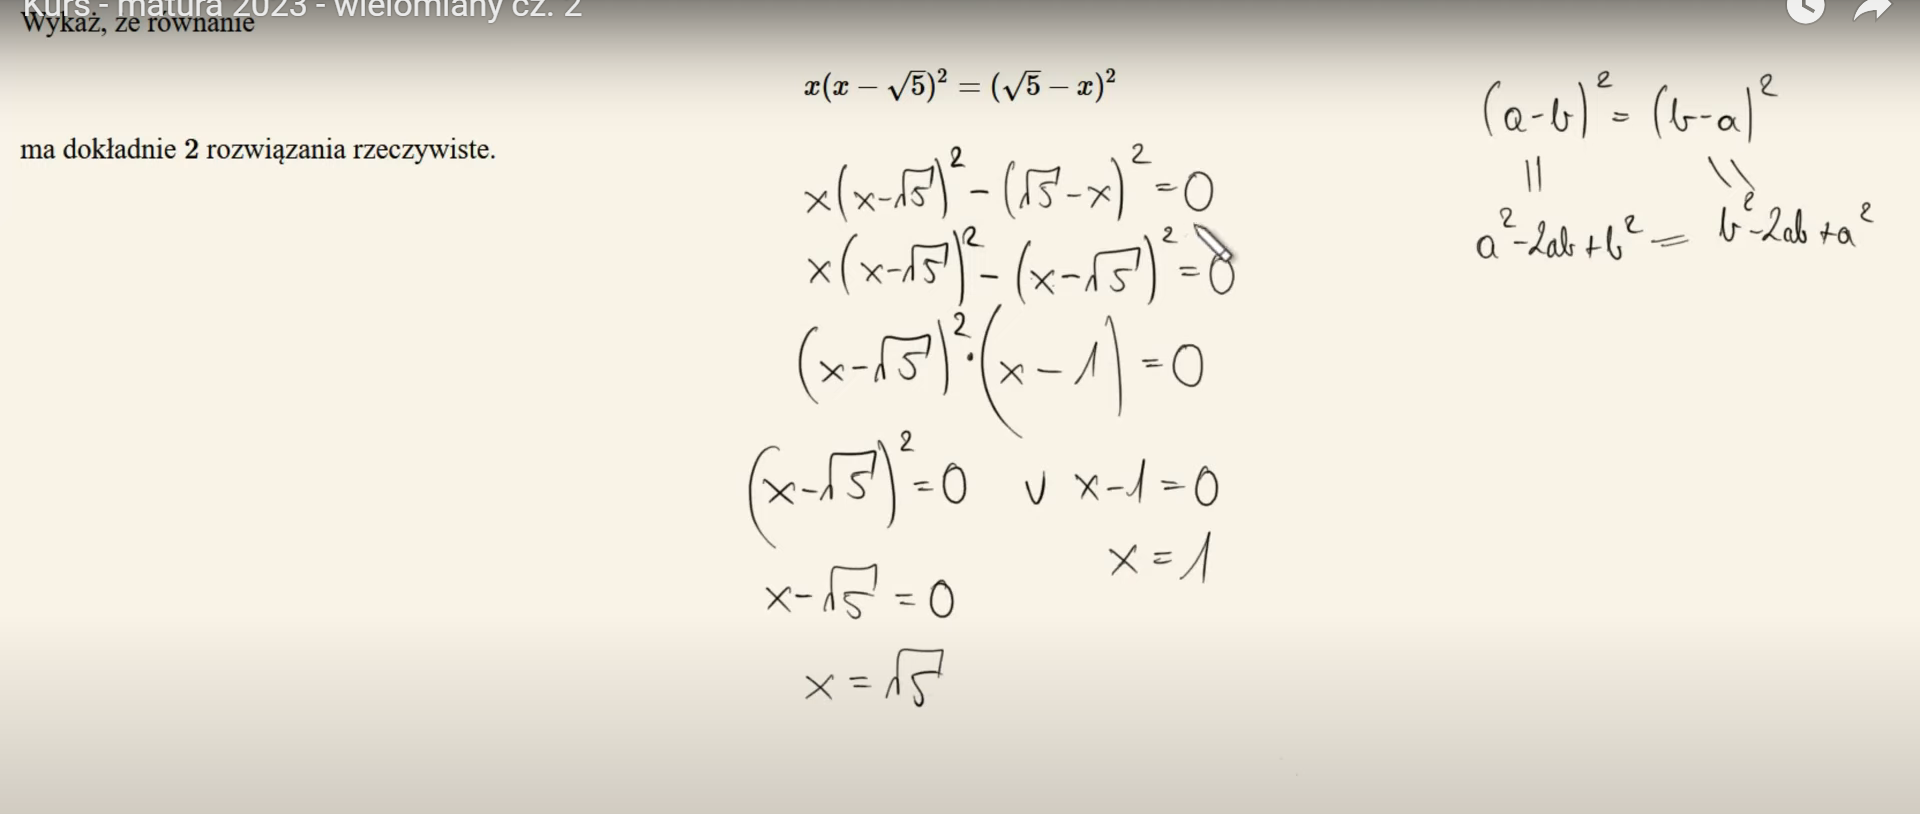 Kurs - matura 2023 - wielomiany cz. 2
Wykaż, że równanie
x(x − √5)² = (√5 − x)²
ma dokładnie 2 rozwiązania rzeczywiste.
x(x-√5)² - (√5-x)² = 0
x(x-√5)² - (x-√5)² = 0
(x-√5)² · (x-1) = 0
(x-√5)² = 0 ∨ x-1=0
x=1
x-√5 = 0
x = √5
(a-b)² = (b-a)²
|| ||
a²-2ab+b² = b²-2ab+a²